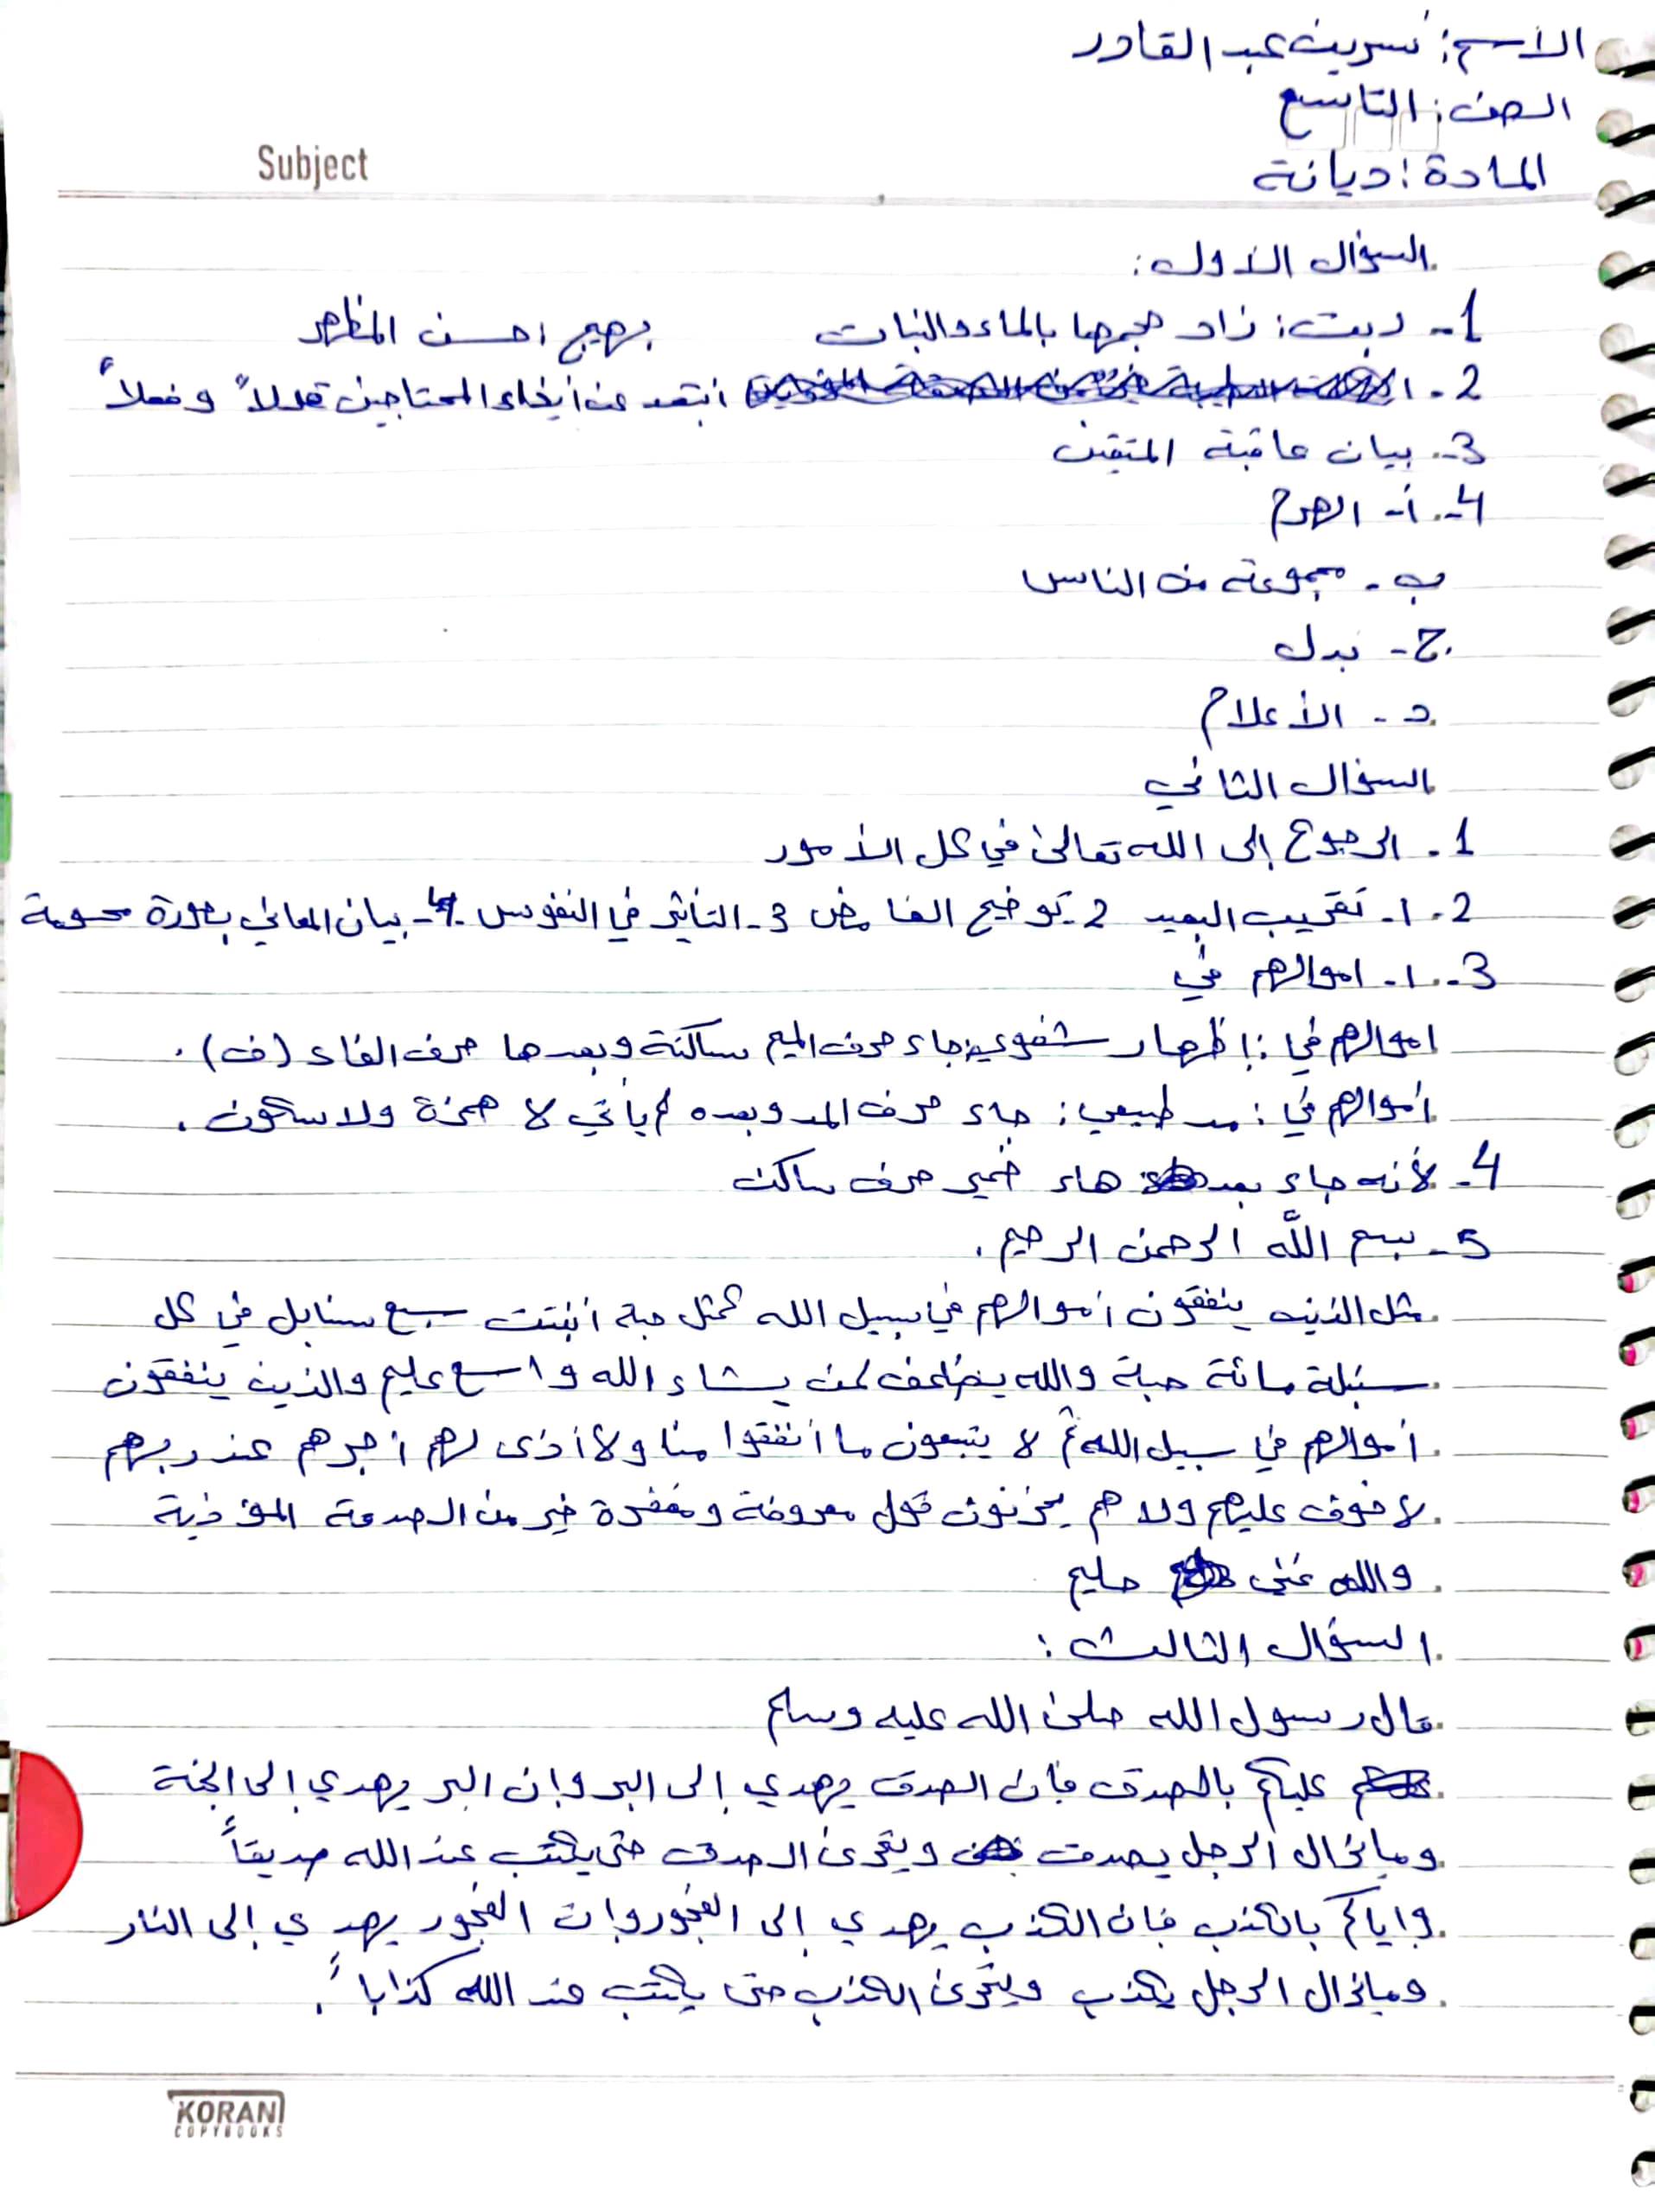 الاسم: نسرين عبد القادر
الصف: التاسع
المادة: ديانة
Subject
السؤال الأول:
1- ربت: زاد حجمها بالماء والنبات بهيج احسن المظهر
2- ابتعد عن أيذاء المحتاجين قولاً وفعلاً
3- بيان عاقبة المتقين
4- أ- الصوم
ب- مجموعة من الناس
ج- بدل
د- الأعلام
السؤال الثاني
1- الرجوع إلى الله تعالى في كل الأمور
2- 1- تقريب البعيد 2- توضيح الغامض 3- التأثير في النفوس 4- بيان المعاني بصورة محسوسة
3- 1- اموالهم في
اموالهم في: إظهار شفوي: جاء حرف الميم ساكنة وبعدها حرف الفاء (ف).
أموالهم في: مد طبيعي: جاء حرف المد وبعده لم يأتي لا همزة ولا سكون.
4- لأنه جاء بعد هاء ضمير حرف ساكن
5- بسم الله الرحمن الرحيم.
مثل الذين ينفقون أموالهم في سبيل الله كمثل حبة أنبتت سبع سنابل في كل
سنبلة مائة حبة والله يضاعف لمن يشاء الله واسع عليم والذين ينفقون
أموالهم في سبيل الله ثم لا يتبعون ما أنفقوا منا ولا أذى لهم أجرهم عند ربهم
لا خوف عليهم ولا هم يحزنون قول معروفة ومغفرة خير من الصدقة المؤذية
والله غني حليم
السؤال الثالث:
قال رسول الله صلى الله عليه وسلم
عليكم بالصدق فإن الصدق يهدي إلى البر وإن البر يهدي إلى الجنة
ومايزال الرجل يصدق ويتحرى الصدق حتى يكتب عند الله صديقاً
وإياكم بالكذب فإن الكذب يهدي إلى الفجور وإن الفجور يهدي إلى النار
ومايزال الرجل يكذب ويتحرى الكذب حتى يكتب عند الله كذاباً.
KORAN
COPYBOOKS